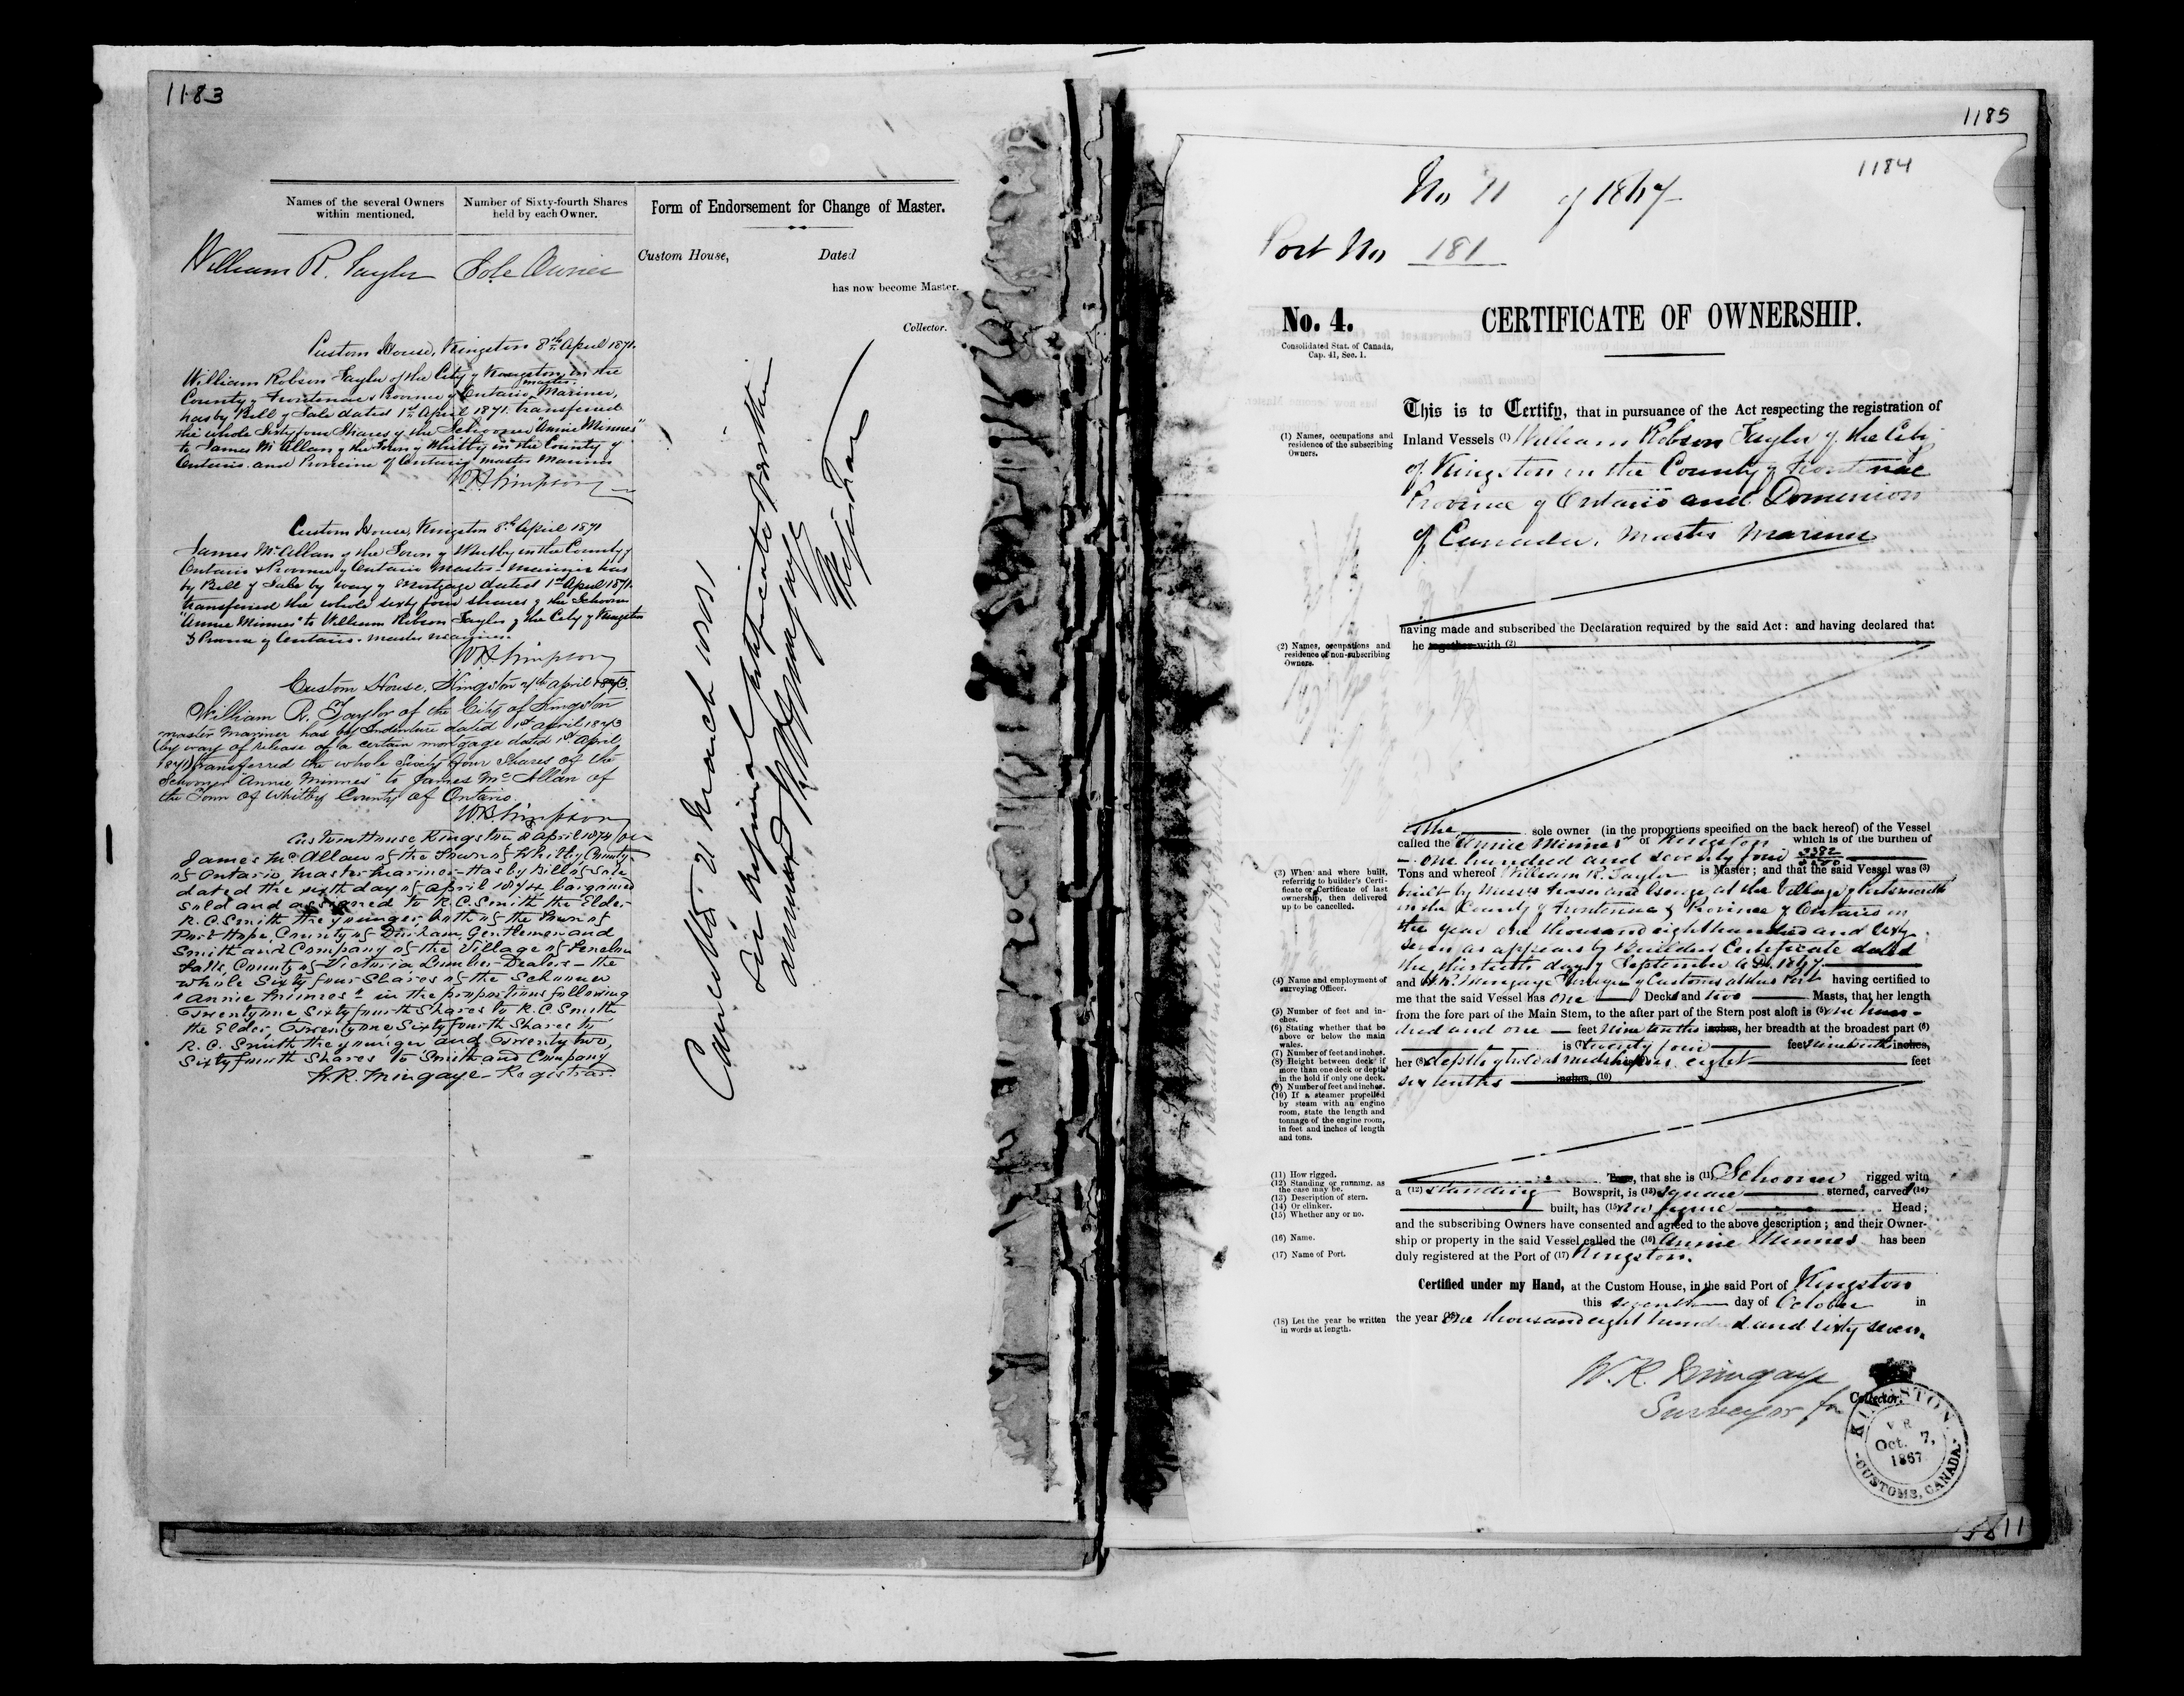 1183
Names of the several Owners
within mentioned.
Number of Sixty-fourth Shares
held by each Owner.
Form of Endorsement for Change of Master.
William R. Taylor
Sole Owner
Custom House,
Dated
has now become Master.
Collector.
Custom House, Kingston 8th April 1871.
William Robson Taylor of the City of Kingston, in the
County of Frontenac & Province of Ontario, master Mariner,
has by Bill of Sale dated 1st April 1871. transferred
the whole Sixty four Shares of the Schooner "Annie Minnes"
to James McAllan of the Town of Whitby in the County of
Ontario and Province of Ontario, master Mariner
WB Simpson
Custom House, Kingston 8th April 1871
James McAllan of the Town of Whitby in the County of
Ontario & Province of Ontario Master-Mariner has
by Bill of Sale by way of Mortgage dated 1st April 1871.
transferred the whole sixty four shares of the Schooner
"Annie Minnes" to William Robson Taylor of the City of Kingston
& Province of Ontario. master mariner.
WB Simpson
Custom House, Kingston April 1873.
William R. Taylor of the City of Kingston
master Mariner has by Indenture dated 1st April 1873
(by way of release of a certain mortgage dated 1st April
1871) transferred the whole Sixty four Shares of the
Schooner "Annie Minnes" to James McAllan of
the Town of Whitby County of Ontario.
W.B. Simpson
Custom House Kingston, 8 April 1874
James McAllan of the Town of Whitby County
of Ontario, Master Mariner - Has by Bill of Sale
dated the sixth day of April 1874 bargained
sold and assigned to R.C. Smith the Elder
R.C. Smith the younger, both of the Town of
Port Hope, County of Durham, Gentlemen and
Smith and Company of the Village of Fenelon
Falls, County of Victoria, Lumber Dealers - the
whole Sixty four Shares of the Schooner
"Annie Minnes" in the proportions following
Twenty one Sixty fourth Shares to R.C. Smith
the Elder, Twenty one Sixty fourth Shares to
R.C. Smith the younger and Twenty two,
Sixty fourth Shares to Smith and Company
W.R. Mingaye - Registrar.
Cancelled 21 March 1881
See Original Certificate herewith
annexed W R Mingaye
Registrar
1185
1184
No 11 of 1867
Port No 181
No. 4.
CERTIFICATE OF OWNERSHIP.
Consolidated Stat. of Canada,
Cap. 41, Sec. 1.
This is to Certify, that in pursuance of the Act respecting the registration of
(1) Names, occupations and
residence of the subscribing
Owners.
Inland Vessels (1) William Robson Taylor of the City
of Kingston in the County of Frontenac
Province of Ontario and Dominion
of Canada. Master Mariner
having made and subscribed the Declaration required by the said Act: and having declared that
(2) Names, occupations and
residence of non-subscribing
Owners.
he together with (2)
is the sole owner (in the proportions specified on the back hereof) of the Vessel
called the "Annie Minnes" of Kingston which is of the burthen of
one hundred and seventy four
Tons and whereof William R. Taylor is Master; and that the said Vessel was (3)
(3) When and where built,
referring to builder's Certi-
ficate or Certificate of last
ownership, then delivered
up to be cancelled.
built by Messrs Fraser and George at the Village of Portsmouth
in the County of Frontenac & Province of Ontario in
the year one thousand eight hundred and sixty
seven as appears by Builders Certificate dated
the thirtieth day of September A.D. 1867.
(4) Name and employment of
surveying Officer.
and W.R. Mingaye Surveyor of Customs at this Port having certified to
me that the said Vessel has one Decks and two Masts, that her length
(5) Number of feet and in-
ches.
from the fore part of the Main Stem, to the after part of the Stern post aloft is (5) one hun-
(6) Stating whether that be
above or below the main
wales.
dred and one feet nine tenths inches, her breadth at the broadest part (6)
is (7) twenty four feet nine tenths inches,
(7) Number of feet and inches.
(8) Height between deck if
more than one deck or depth
in the hold if only one deck.
her (8) depth of hold at midships is eight feet
(9) Number of feet and inches.
six tenths inches, (10)
(10) If a steamer propelled
by steam with an engine
room, state the length and
tonnage of the engine room,
in feet and inches of length
and tons.
(11) How rigged.
(12) Standing or running, as
the case may be.
(13) Description of stern.
(14) Or clinker.
(15) Whether any or no.
Tons, that she is (11) Schooner rigged with
a (12) standing Bowsprit, is (13) square sterned, carvel (14)
built, has (15) no figure Head;
and the subscribing Owners have consented and agreed to the above description; and their Owner-
(16) Name.
ship or property in the said Vessel called the (16) Annie Minnes has been
(17) Name of Port.
duly registered at the Port of (17) Kingston.
Certified under my Hand, at the Custom House, in the said Port of Kingston
this seventh day of October in
(18) Let the year be written
in words at length.
the year (18) One thousand eight hundred and sixty seven.
W.R. Mingaye
Surveyor for
Collector.
KINGSTON
V R
Oct. 7,
1867
CUSTOMS, CANADA.